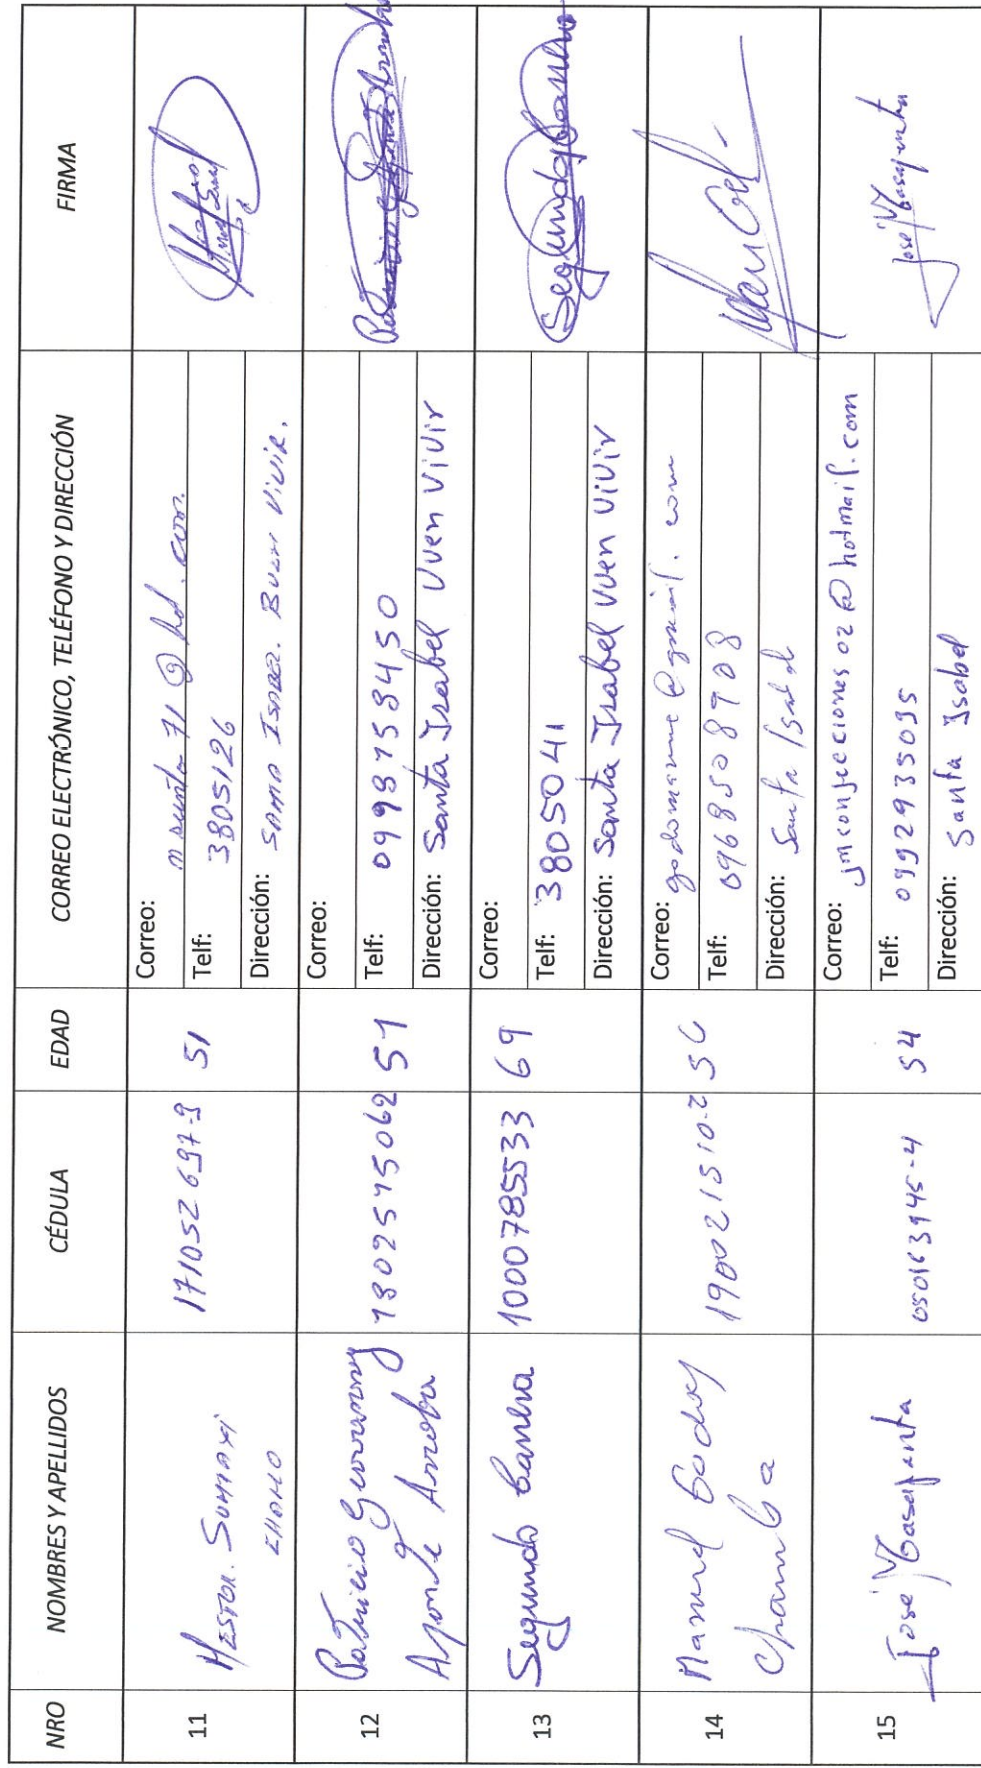 NRO NOMBRES Y APELLIDOS CÉDULA EDAD CORREO ELECTRÓNICO, TELÉFONO Y DIRECCIÓN FIRMA
11
171052697-9
51
Correo: 71@hot.com.
Telf: 3805126
Dirección: SANTA ISABEL. BUEN VIVIR.
12
Patricio Geovanny
Aponte Arroba
1802575062
51
Correo:
Telf: 0998758450
Dirección: Santa Isabel Vuen ViVir
13
Segundo Carrera
1000785533
69
Correo:
Telf: 3805041
Dirección: Santa Isabel Vuen ViVir
Segundo Carrera
14
Manuel Godoy
Chamba
190021510-2
56
Correo: @gmail.com
Telf: 0968508908
Dirección: Santa Isabel
15
José
050163945-4
54
Correo: jmconfecciones02@hotmail.com
Telf: 0992935095
Dirección: Santa Isabel
José